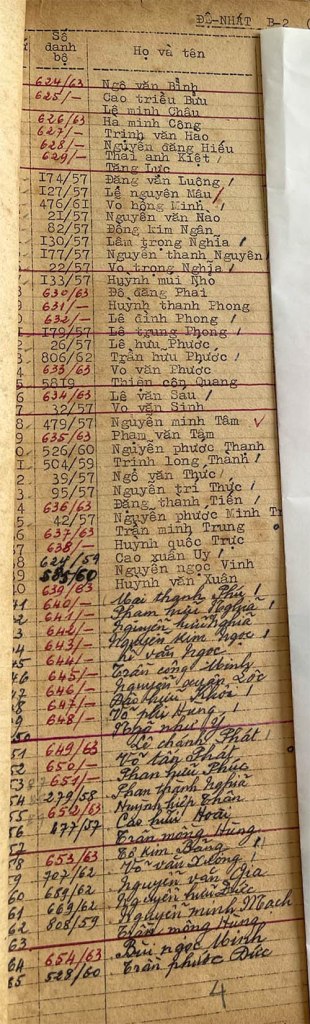 ĐỆ-NHẤT B-2 (
Số danh bộ Họ và tên
624/63 Ngô văn Bỉnh
625/- Cao triều Bửu
Lê minh Châu
626/63 Hà minh Công
627/- Trịnh văn Hao
628/- Nguyễn đăng Hiếu
629/- Thái anh Kiệt
Tăng Lực
174/57 Đặng văn Luông
127/57 Lê nguyên Mâu
476/61 Vo hồng Minh
21/57 Nguyễn văn Nao
82/57 Đồng kim Ngân
130/57 Lâm trọng Nghĩa
177/57 Nguyễn thanh Nguyên
22/57 Vo trọng Nghĩa
133/57 Huỳnh mùi Nho
630/63 Đỗ đăng Phai
631/- Huỳnh thanh Phong
632/- Lê đình Phong
179/57 Lê trung Phong
26/57 Lê hưu Phước
806/62 Trần hưu Phước
633/63 Vo văn Phước
5819 Thiên côn Quang
634/63 Lê văn Sau
32/57 Vo văn Sinh
479/57 Nguyễn minh Tâm
635/63 Phạm văn Tâm
526/60 Nguyễn phước Thạnh
504/59 Trịnh long Thành
39/57 Ngô văn Thức
95/57 Nguyễn tri Thức
636/63 Đặng thanh Tiến
42/57 Nguyễn phước Minh Tr
637/63 Trần minh Trung
638/- Huỳnh quốc Trực
624/59 Cao xuân Uy
585/60 Nguyễn ngọc Vinh
639/63 Huỳnh văn Xuân
640/- Mai thạnh Phú
641/- Phạm hữu Nghĩa
642/- Nguyễn hữu Nghĩa
643/- Nguyễn kim Ngọc
644/- văn Ngọc
645/- Trần công Minh
646/- Nguyễn xuân Lộc
647/- hữu Khôi
648/- Võ phi Hùng
Ngô như Ý
649/63 Lê chánh Phát
650/- Võ tấn Phát
651/- Phan hữu Phúc
279/58 Phan thanh Nghĩa
652/63 Huỳnh hiệp Thân
477/57 Cao hữu Hoài
Trần mộng Hùng
653/63 Tô kim Bằng
707/62 Võ văn
689/62 Nguyễn văn Gia
669/62 Nguyễn hữu Đức
808/59 Nguyễn minh Mạch
Trần mộng Hùng
654/63 Bùi ngọc Minh
528/60 Trần phước Đức
4